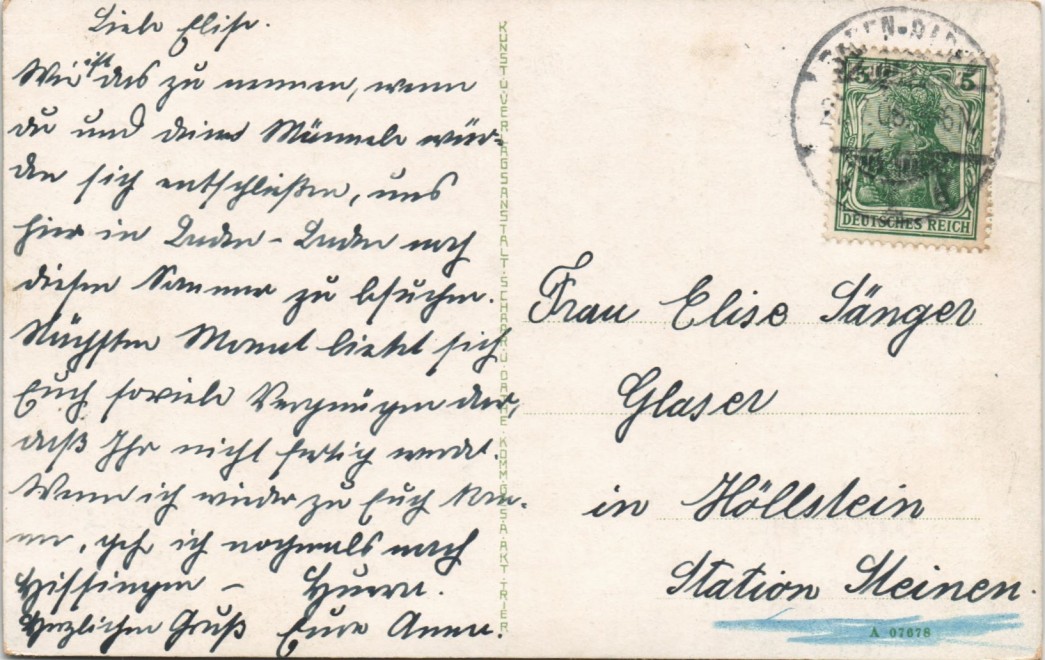 Liebe Elise.
Wie ist das zu nennen, wenn
du und deine Männele wür-
den sich entschließen, uns
hier in Baden-Baden noch
diesen Sommer zu besuchen.
Nächsten Monat bietet sich
Euch soviele Vergnügen dar,
daß Ihr nicht fertig werdet.
Wenn ich wieder zu Euch kom-
me, geh ich nochmals nach
Herzlichen Gruß Eure Anna.
KUNST U. VERLAGSANSTALT SCHAAR U. DATHE KOMM. GES. A. AKT. TRIER
BADEN-BADEN
5 5
DEUTSCHES REICH
Frau Elise Sänger
Glaser
in Höllstein
Station Steinen.
A 07678